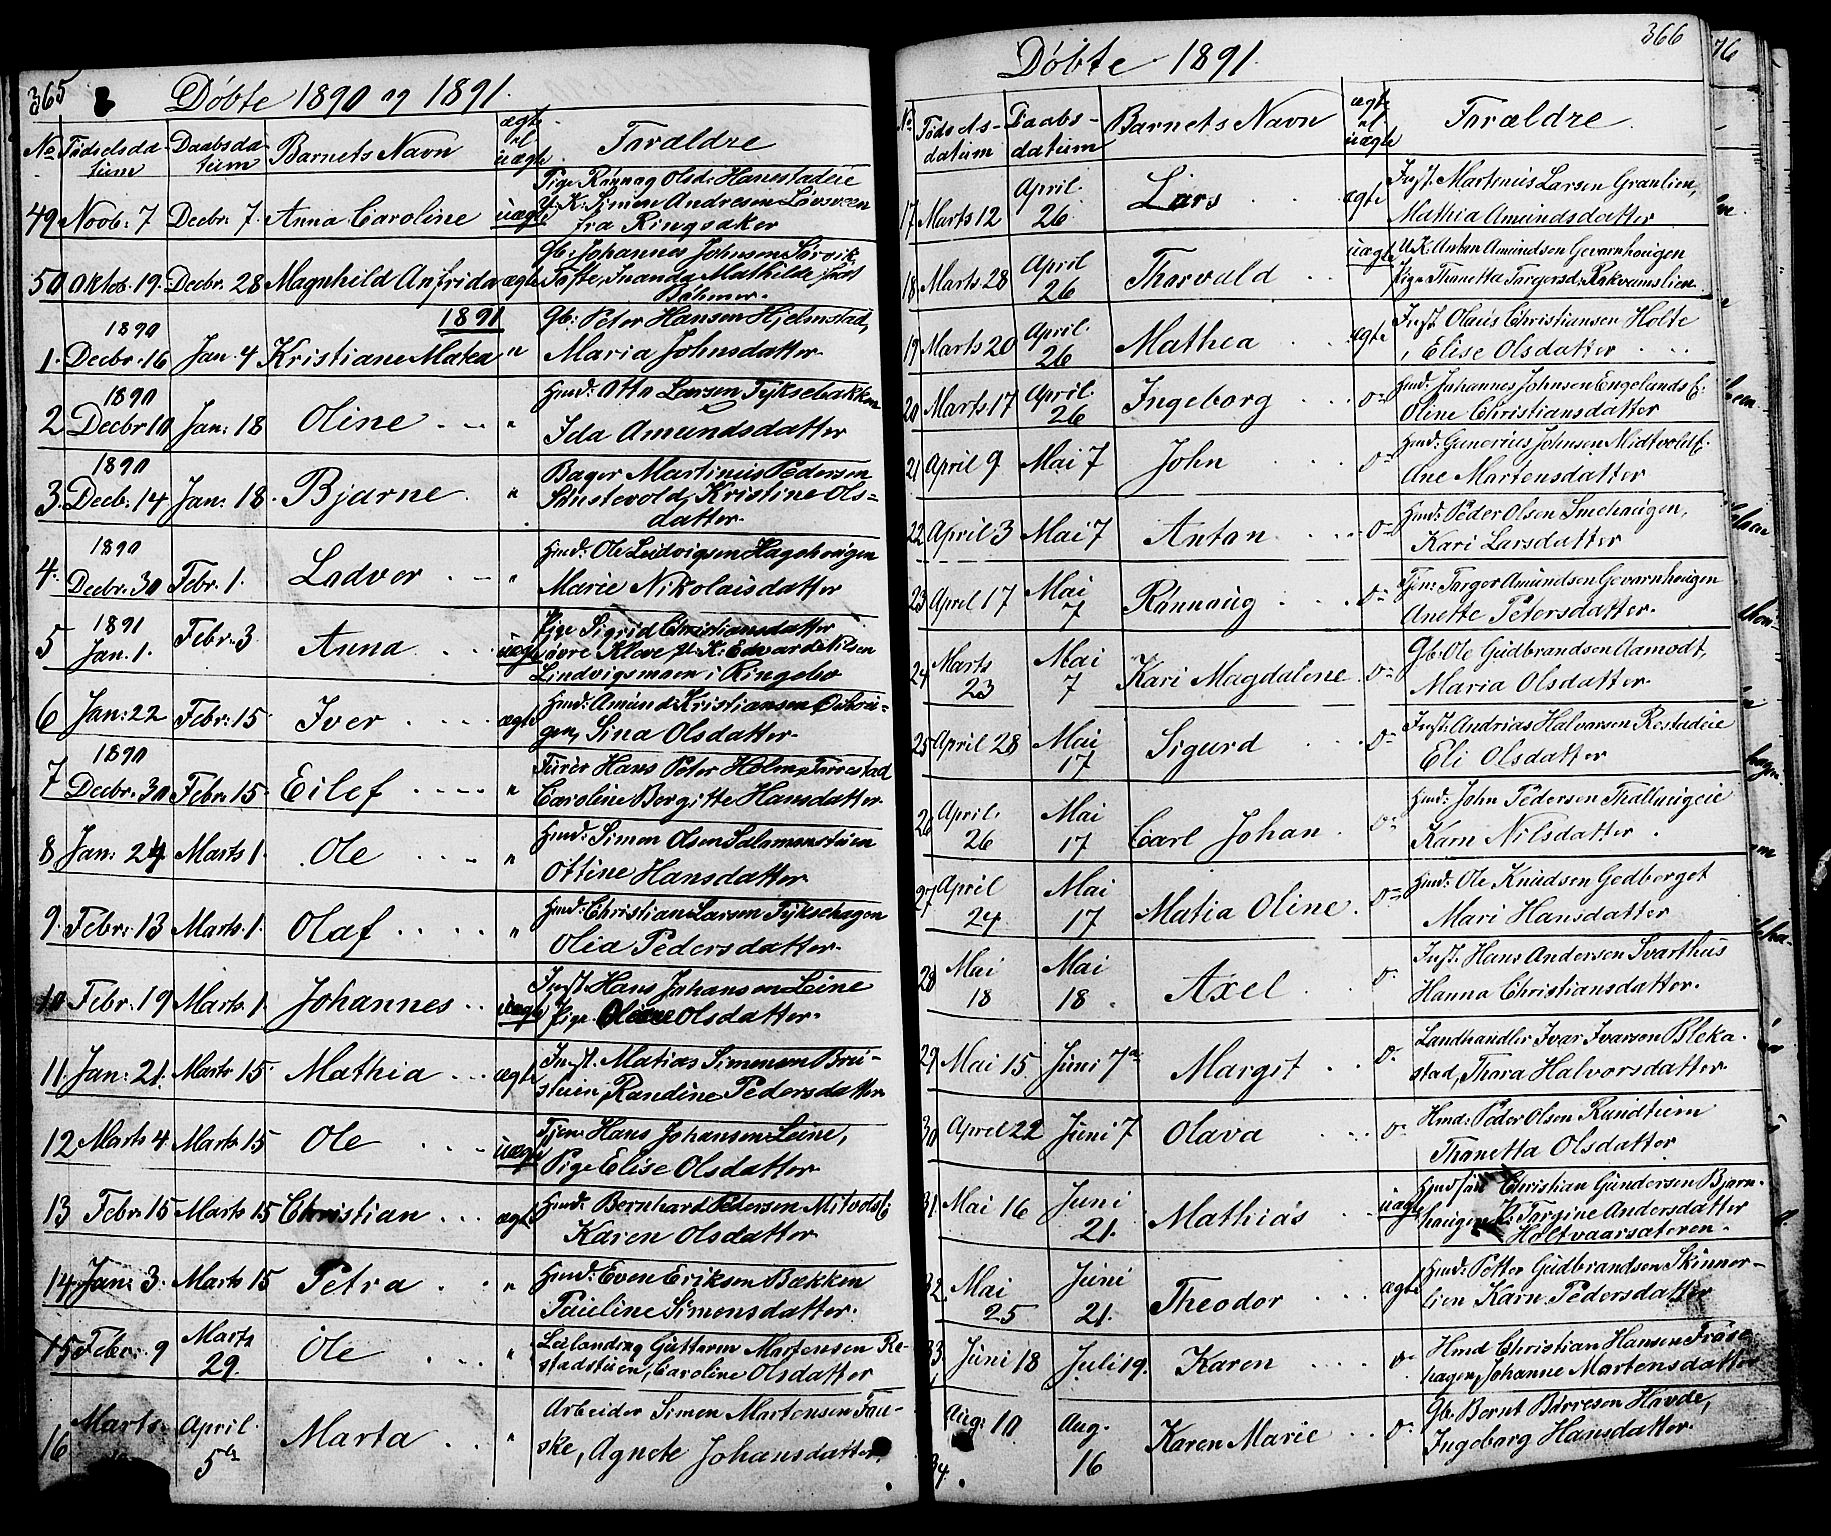 365
Døbte 1890 og 1891.
No Fødselsda- Daabsda- Barnets Navn ægte Forældre
tum tum el uægte
Pige Rönnog Olsd: Hanestadeie
49 Novb: 7 Decbr. 7. Anna Caroline uægte U.K. Simon Andresen Løvsveen
fra Ringsaker
Gb: Johannes Johnsen Sørvik
50 Oktob. 19. Decbr. 28 Magnhild Anfrida ægte Mathilde født
Böhmer.
1890 1891 Gb: Peter Hansen Hjelmstad,
1. Decbr. 16 Jan. 4 Kristiane Matea " Maria Johnsdatter.
1890 Hmd: Otto Larsen Tyksebakken
2 Decbr 10 Jan: 18 Oline " Ida Amundsdatter
1890 Bager Martinus Pedersen
3. Decb: 14 Jan: 18. Bjarne " Kristine Ols=
datter.
1890 Hmd: Ole Ludvigsen Hagehougen
4. Decbr. 30 Febr. 1. Ladver " Marie Nikolaisdatter
1891 Pige Sigrid Christiansdatter
5 Jan. 1. Febr. 3 Anna uægte øvre Klove, U.K: Edvard Nilsen
Lindvigsmoen i Ringebo
6 Jan: 22 Febr: 15 Iver ægte Hmd: Amund Kristiansen
gen, Sina Olsdatter.
1890 Furer Hans Peter Holm, Furestad
7 Decbr. 30 Febr. 15 Eilef " Caroline Bergitte Hansdatter.
Hmd: Simon Olsen Salamonstuen
8 Jan: 24 Marts 1. Ole " Ottine Hansdatter
Hmd: Christian Larsen Tyksehagen
9. Febr. 13 Marts 1. Olaf " Olia Pedersdatter.
Inst. Hans Johansen Leine
10 Febr. 19 Marts. 1 Johannes uægte Pige Oliane Olsdatter.
Inst. Matias Simensen Bru-
11 Jan: 21. Marts 15. Mathia ægte stuen, Randine Pedersdatter
Tjen: Hans Johansen Leine,
12 Marts 4. Marts 15 Ole uægte Pige Elise Olsdatter.
Hmd: Bernhard Pedersen
13 Febr. 15 Marts 15 Christian ægte Karen Olsdatter.
Hmd: Even Eriksen Bækken
14. Jan: 3. Marts 15 Petra " Pauline Simonsdatter.
Marts Leilænding Guttorm Martensen Re-
15 Febr: 9 29. Ole " stadstuen, Caroline Olsdatter
Marts. April. Arbeider Simen Martensen Fau-
16 5te Marta " ske, Agnete Johansdatter.
366
Døbte 1891.
No Fødsels- Daabs- Barnets Navn ægte Forældre
datum datum el uægte
April. Inst. Martinus Larsen Granlien,
17 Marts 12 26. Lars ægte Mathia Amundsdatter
April uægte U.K. Anton Amundsen Gevarnhougen
18 Marts 28 26 Thorvald Pige Thonetta Torgersd: Rokvamslien
April. Inst. Olaus Christiansen Holte
19 Marts 20 26 Mathea ægte , Elise Olsdatter
April. Hmd: Johannes Johnsen Engelands E:
20 Marts 17 26 Ingeborg o= Oline Christiansdatter
Hmd: Gunerius Johnsen Midtvold E:
21 April 9 Mai 7 John o= Ane Martensdatter
Hmd: Peder Olsen Smehaugen,
22 April 3 Mai 7 Anton o= Kari Larsdatter
Mai Tjen: Torger Amundsen Gevarnhougen
23 April 17 7 Rønnaug o= Anette Petersdatter.
Marts Mai Gb. Ole Gudbrandsen Aamodt,
24 23 7 Kari Magdalene o= Maria Olsdatter.
Mai Inst. Andrias Halvorsen Restadeie
25 April 28 17 Sigurd o= Eli Olsdatter
April. Mai Hmd: John Pedersen Thallaugeie
26 26 17 Carl Johan o= Karn Nilsdatter.
April Mai Hmd: Ole Knudsen Godberget
27 24 17 Matia Oline o= Mari Hansdatter
Mai Mai Inst. Hans Andersen Svarthus
28 18 18. Axel o. Hanna Christiansdatter.
Landhandler Ivar Ivarson Bleka-
29 Mai 15 Juni 7de Margit o- stad, Thora Halvorsdatter.
Hmd: Peder Olsen Rundtum
30 April 22 Juni 7 Olava o- Thonetta Olsdatter
Juni Hmdsøn Christian Gundersen Bjørn-
31. Mai 16 21. Mathias uægte haugen P. Torgine Andersdatter
Holtvaarsateren.
Mai Juni Hmd: Petter Gudbrandsen Skinner-
32. 25 21. Theodor ægte lien Karn Pedersdatter
Hmd Christian Hansen Frøse
33 Juni 18 Juli 19. Karen o- hagen, Johanne Martensdatter
Aug: 10 Aug. Gb. Bernt Børresen Hovde,
34. 16 Karen Marie o- Ingeborg Hansdatter.
76